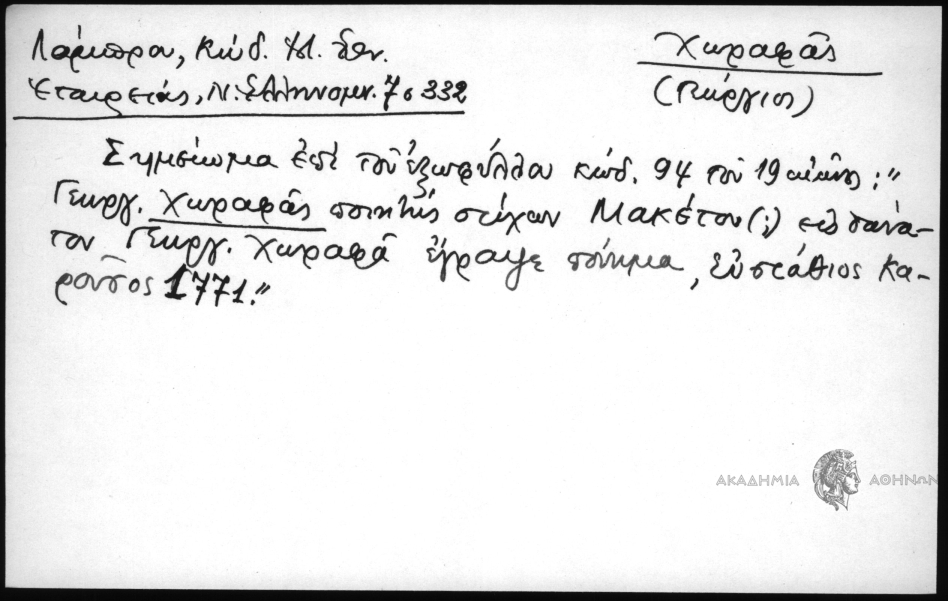 Λάμπρου, Κώδ. Ἱστ. Ἐθν.
Ἑταιρείας, Ν. Ἑλληνομν. 7ο 332
Χωραφᾶς
(Γεώργιος)
Σημείωμα ἐπὶ τοῦ ἐξωφύλλου κώδ. 94 τοῦ 19 αἰῶνος : "
Γεωργ. Χωραφᾶς ποιητὴς στίχων Μακέτου (;) εἰς θάνα-
τον Γεωργ. Χωραφᾶ ἔγραψε ποίημα, Εὐστάθιος Κα-
ροῦσος 1771."
ΑΚΑΔΗΜΙΑ ΑΘΗΝΩΝ